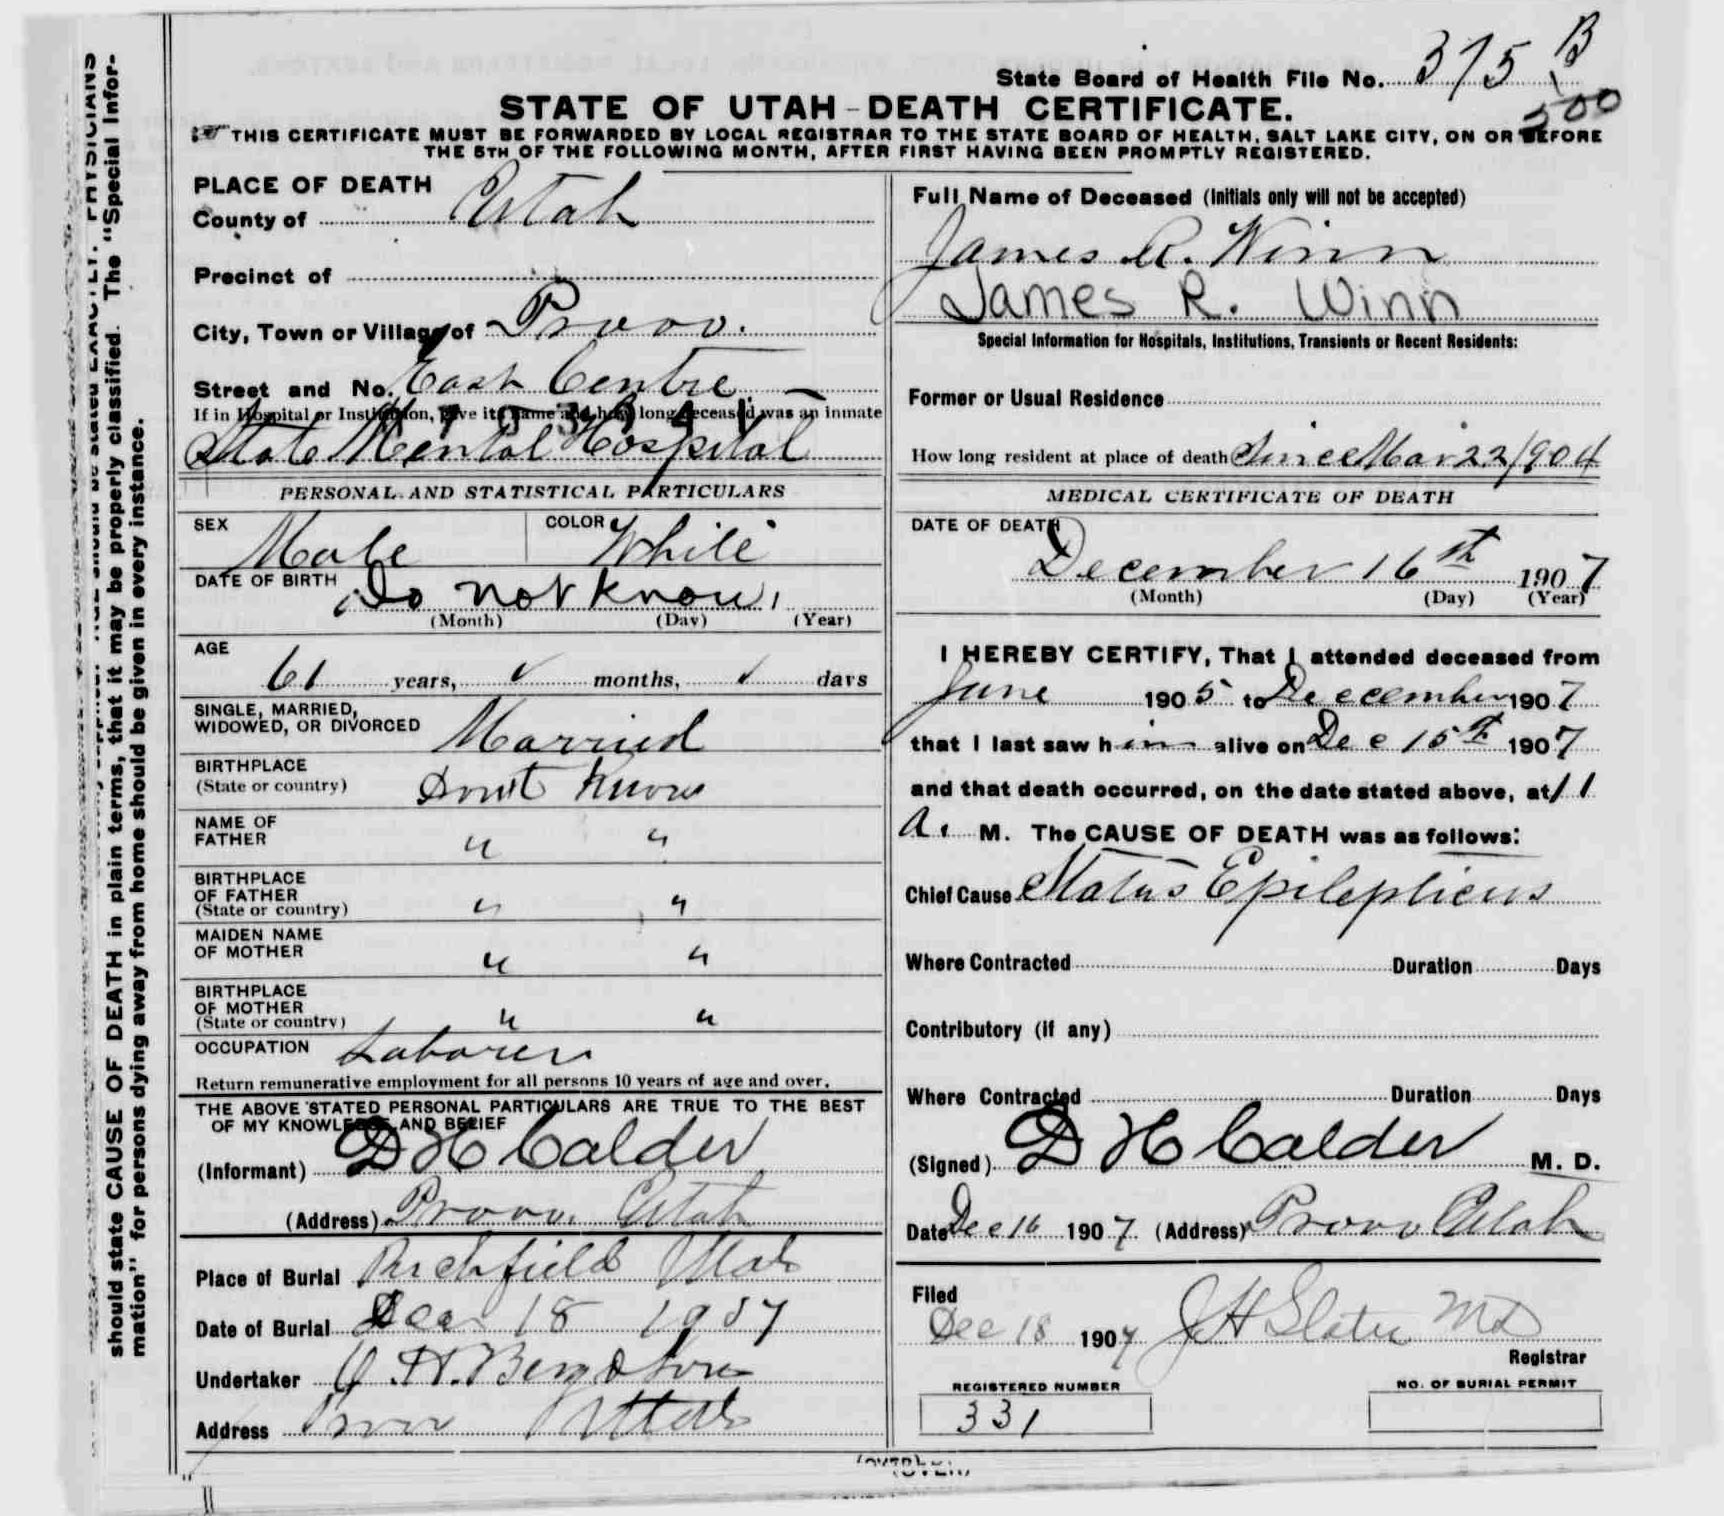 State Board of Health File No. 375 B
500
STATE OF UTAH - DEATH CERTIFICATE.
THIS CERTIFICATE MUST BE FORWARDED BY LOCAL REGISTRAR TO THE STATE BOARD OF HEALTH, SALT LAKE CITY, ON OR BEFORE
THE 5TH OF THE FOLLOWING MONTH, AFTER FIRST HAVING BEEN PROMPTLY REGISTERED.
should state CAUSE OF DEATH in plain terms, that it may be properly classified. The "Special Infor-
mation" for persons dying away from home should be given in every instance.
PLACE OF DEATH
County of Utah
Precinct of
City, Town or Village of Provo.
Street and No. East Centre
If in Hospital or Institution, give its name and how long deceased was an inmate
State Mental Hospital
PERSONAL AND STATISTICAL PARTICULARS
SEX Male COLOR White
DATE OF BIRTH Do not know.
(Month) (Day) (Year)
AGE
61 years, ✓ months, ✓ days
SINGLE, MARRIED,
WIDOWED, OR DIVORCED Married
BIRTHPLACE
(State or country) Dont Know
NAME OF
FATHER " "
BIRTHPLACE
OF FATHER
(State or country) " "
MAIDEN NAME
OF MOTHER " "
BIRTHPLACE
OF MOTHER
(State or country) " "
OCCUPATION Laborer
Return remunerative employment for all persons 10 years of age and over.
THE ABOVE STATED PERSONAL PARTICULARS ARE TRUE TO THE BEST
OF MY KNOWLEDGE AND BELIEF
(Informant) D H Calder
(Address) Provo. Utah
Place of Burial Richfield Utah
Date of Burial Dec 18 1907
Undertaker O. H. Berg & Sons
Address Provo Utah
Full Name of Deceased (Initials only will not be accepted)
James R. Winn
James R. Winn
Special Information for Hospitals, Institutions, Transients or Recent Residents:
Former or Usual Residence
How long resident at place of death Since Mar 22/904
MEDICAL CERTIFICATE OF DEATH
DATE OF DEATH
December 16th 1907
(Month) (Day) (Year)
I HEREBY CERTIFY, That I attended deceased from
June 1905 to December 1907
that I last saw him alive on Dec 15th 1907
and that death occurred, on the date stated above, at 11
a. M. The CAUSE OF DEATH was as follows:
Chief Cause Status Epilepticus
Where Contracted Duration Days
Contributory (if any)
Where Contracted Duration Days
(Signed) D H Calder M. D.
Date Dec 16 1907 (Address) Provo Utah
Filed
Dec 18 1907 J H Slater MD
Registrar
REGISTERED NUMBER
331
NO. OF BURIAL PERMIT
(OVER)